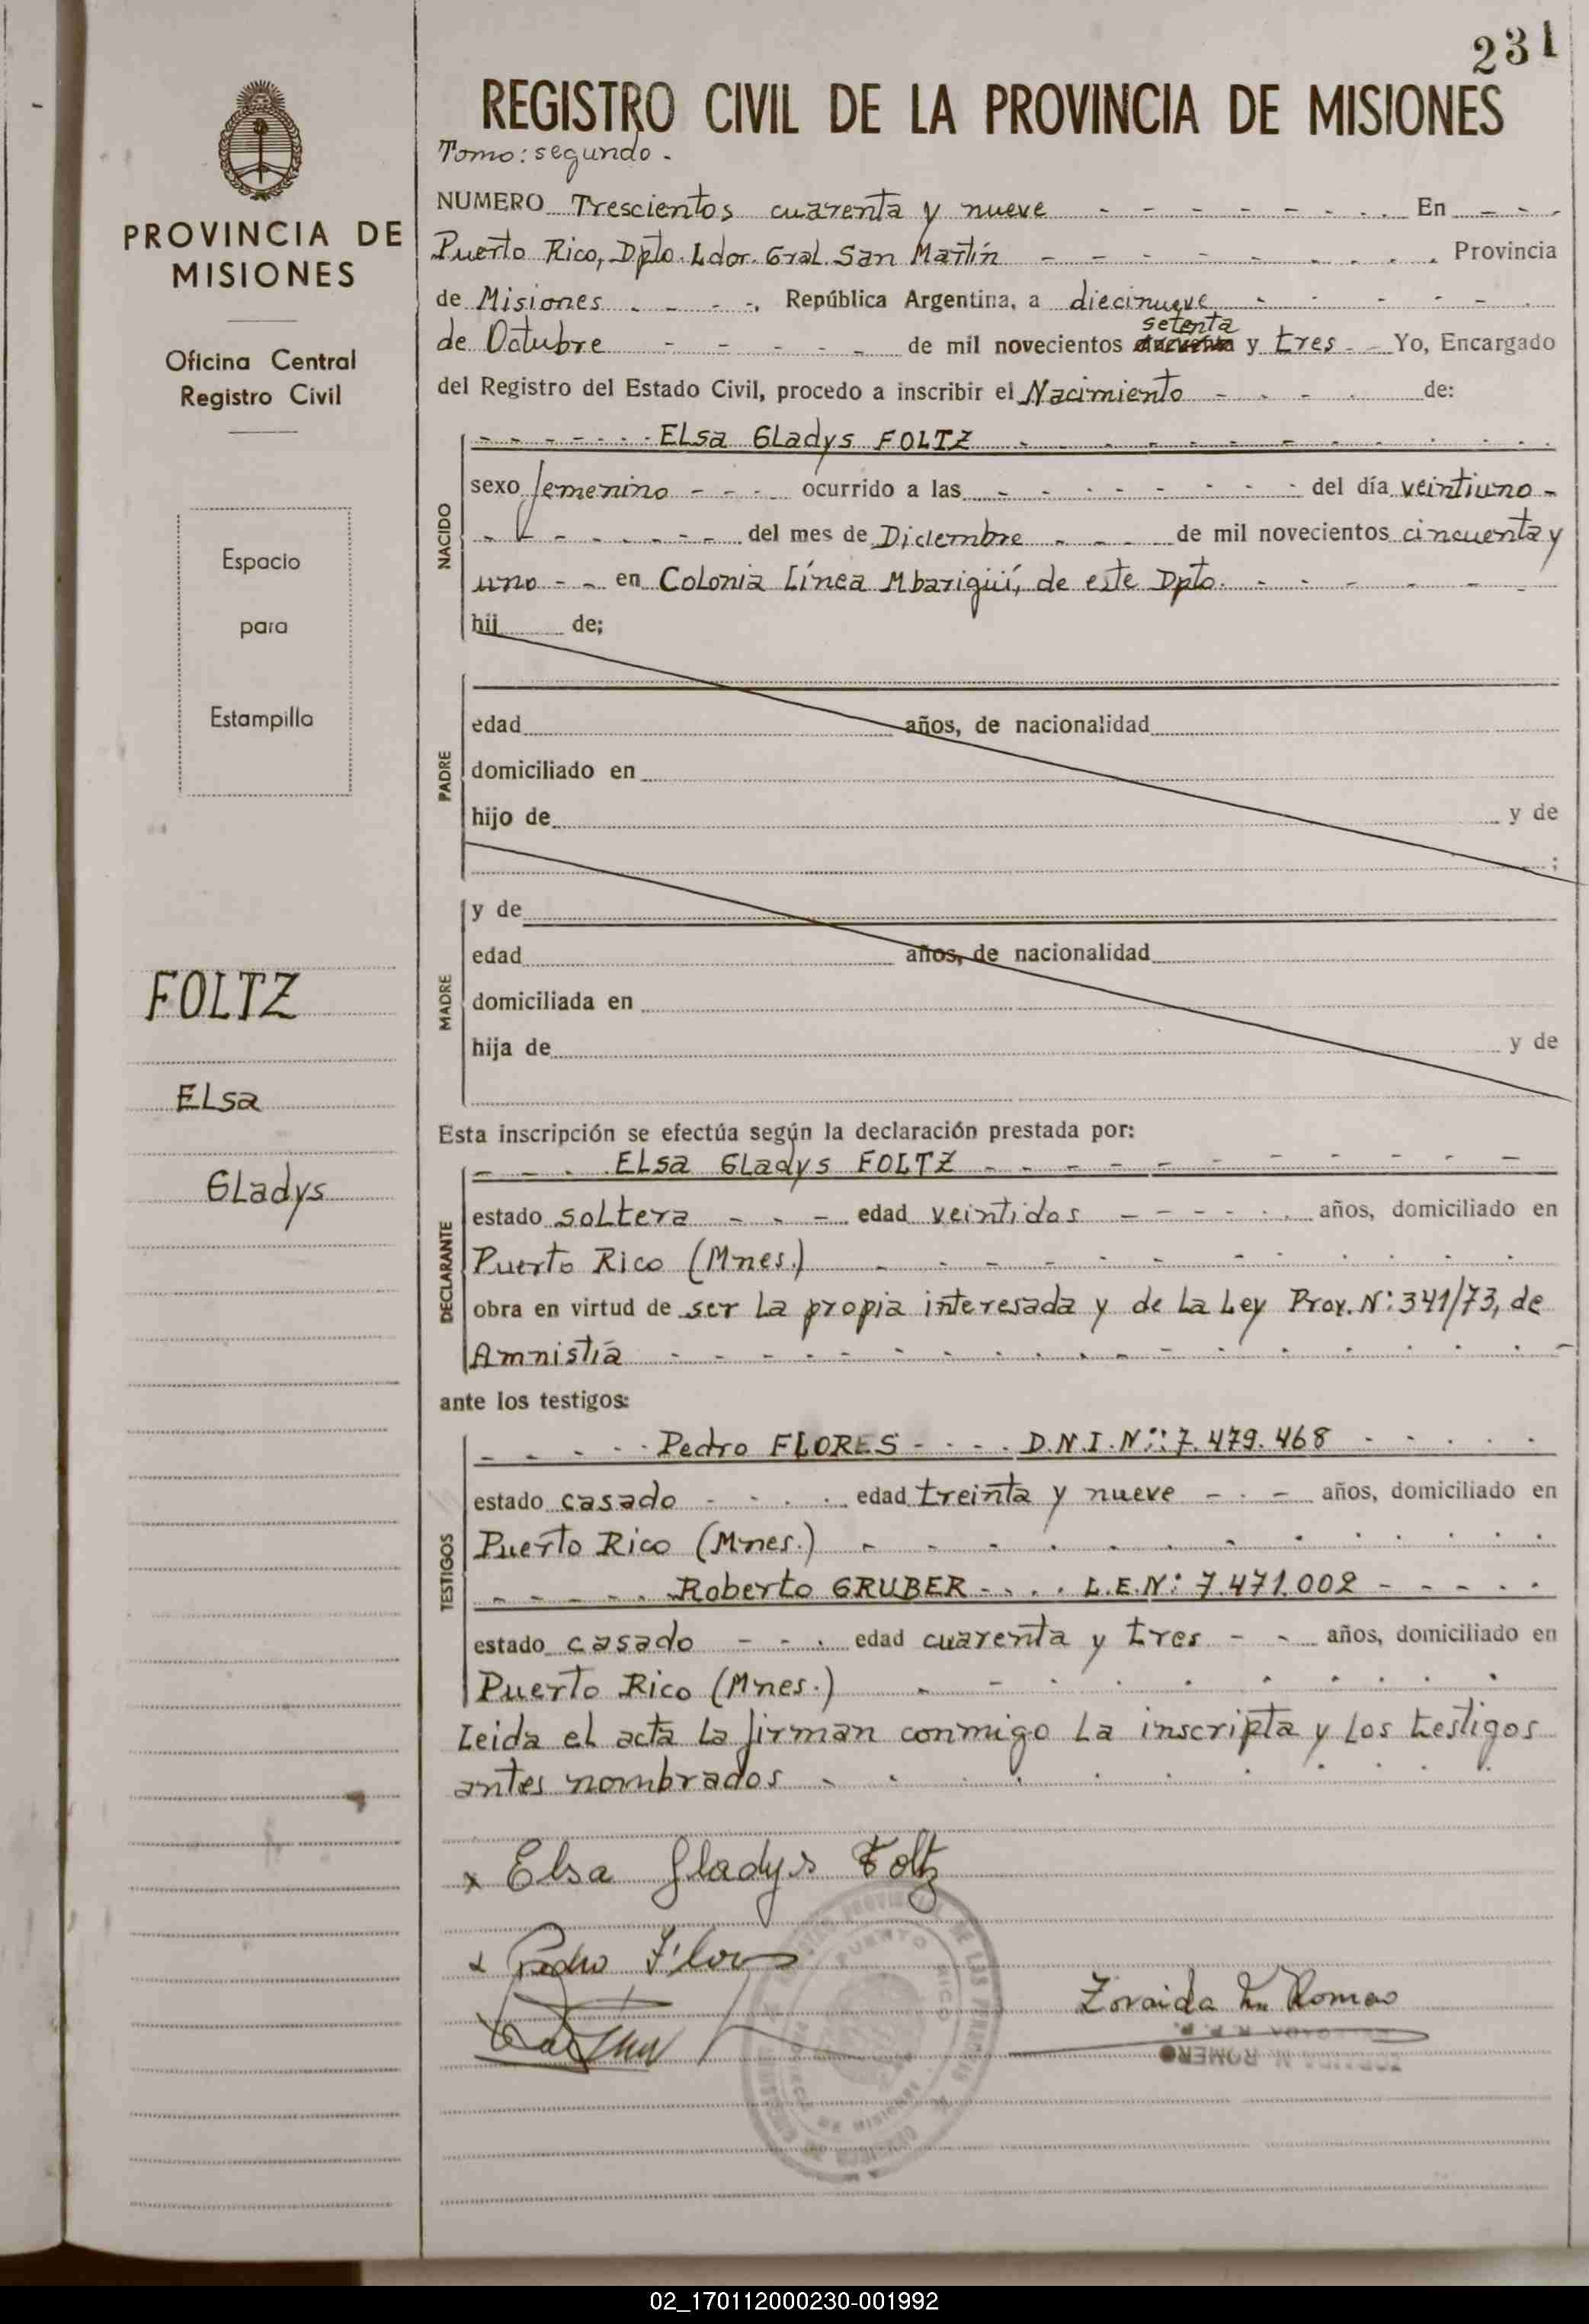 231
REGISTRO CIVIL DE LA PROVINCIA DE MISIONES
Tomo: segundo.
NUMERO Trescientos cuarenta y nueve - - - - - - - - En - - -
Puerto Rico, Dpto. Ldor. Gral. San Martín - - - - - - - - Provincia
de Misiones - - - -, República Argentina, a diecinueve - - - - - -
setenta
de Octubre - - - - - de mil novecientos y tres - - Yo, Encargado
del Registro del Estado Civil, procedo a inscribir el Nacimiento - - - - de:
- - - - - - ELSa GLadys FOLTZ - - - - - - - - - -
sexo femenino - - - ocurrido a las - - - - - - - - del día veintiuno -
- - - - - - - del mes de Diciembre - - - de mil novecientos cincuenta y
uno - - en Colonia Línea Mbarigüí, de este Dpto. - - - - - -
hij de;
edad años, de nacionalidad
domiciliado en
hijo de y de
;
y de
edad años, de nacionalidad
domiciliada en
hija de y de
Esta inscripción se efectúa según la declaración prestada por:
- - - ELSa GLadys FOLTZ - - - - - - - - - -
estado soltera - - - edad veintidos - - - - - - años, domiciliado en
Puerto Rico (Mnes.) - - - - - - - - - -
obra en virtud de ser la propia interesada y de la Ley Prov. N: 341/73, de
Amnistía - - - - - - - - - - - - - - -
ante los testigos:
- - - - - Pedro FLORES - - - - D.N.I. N°: 7.479.468 - - - - -
estado casado - - - - edad treinta y nueve - - - años, domiciliado en
Puerto Rico (Mnes.) - - - - - - - - - -
- - - - - Roberto GRUBER - - - - L.E.N: 7.471.002 - - - - -
estado casado - - - edad cuarenta y tres - - años, domiciliado en
Puerto Rico (Mnes.) - - - - - - - - -
Leida el acta la firman conmigo la inscripta y los testigos
antes nombrados - - - - - - - - -
x Elsa Gladys Foltz
x Pedro Flores
Zoraida Romero
ROMERO
PROVINCIA DE
MISIONES
Oficina Central
Registro Civil
Espacio
para
Estampilla
FOLTZ
ELSa
GLadys
NACIDO
PADRE
MADRE
DECLARANTE
TESTIGOS
PUERTO RICO
02_170112000230-001992